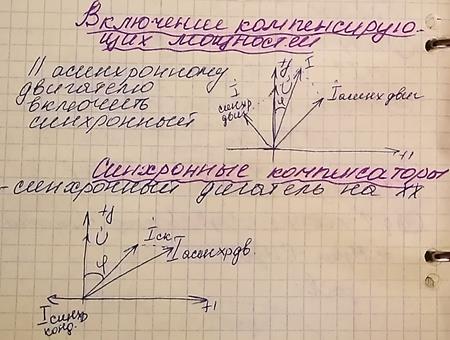 Включение компенсирую-
щих мощностей
|| асинхронному
двигателю
включить
синхронный
İ синхр двиг
+j
U̇
φ
İ
İ асинх двиг
+1
Синхронные компенсаторы
- синхронный двигатель на хх
+j
U̇
φ
İ ск
İ асинхр дв.
İ синхр
конд.
+1